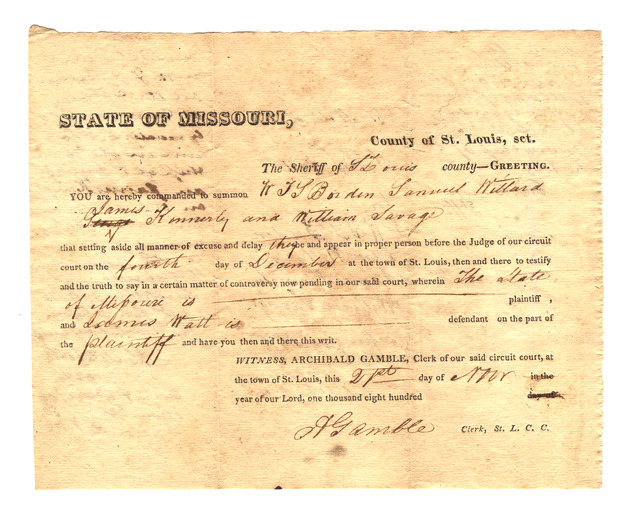 STATE OF MISSOURI,
County of St. Louis, sct.
The Sheriff of St Louis county—GREETING.
YOU are hereby commanded to summon W T S Borden Samuel Willard
James
Kennerly and William Savage
that setting aside all manner of excuse and delay they and appear in proper person before the Judge of our circuit
court on the fourth day of December at the town of St. Louis, then and there to testify
and the truth to say in a certain matter of controversy now pending in our said court, wherein The State
of Missouri is plaintiff ,
and James Watt is defendant on the part of
the plaintiff and have you then and there this writ.
WITNESS, ARCHIBALD GAMBLE, Clerk of our said circuit court, at
the town of St. Louis, this day of Novr in the
year of our Lord, one thousand eight hundred day of
A Gamble Clerk, St. L. C. C.